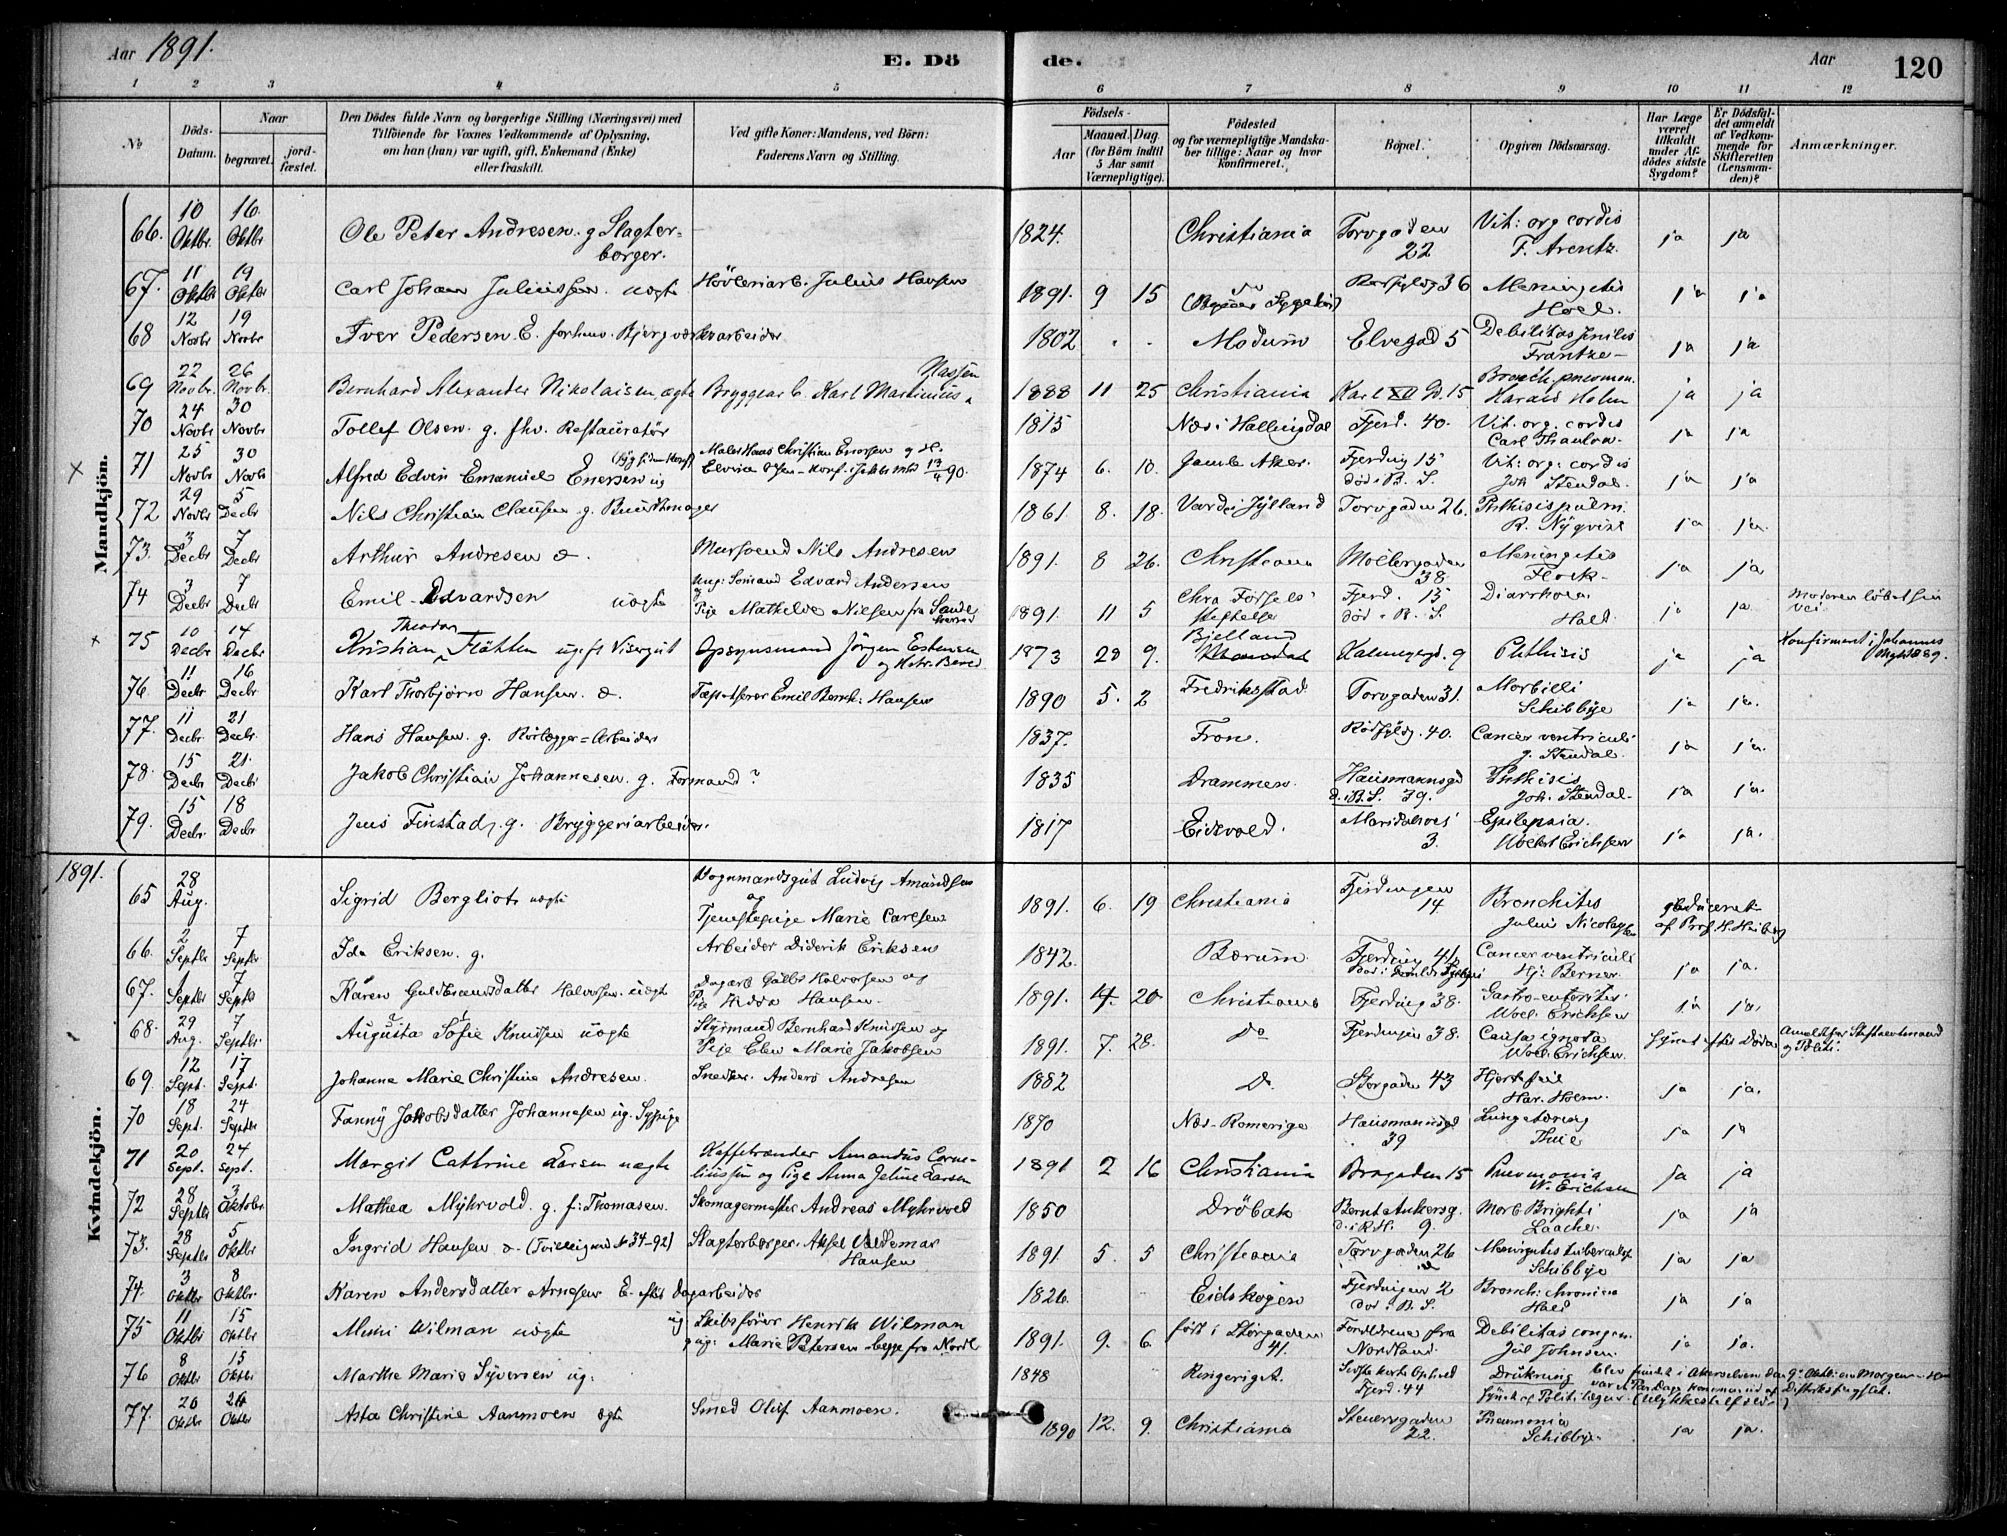 Aar 1891.
E. Dö
de.
Aar
120
1 2 3 4 5 6 7 8 9 10 11 12
№
Döds-Datum.
Naar
begravet.
jordfæstet.
Den Dödes fulde Navn og borgerlige Stilling (Næringsvei) med
Tilföiende for Voxnes Vedkommende af Oplysning,
om han (hun) var ugift, gift, Enkemand (Enke)
eller fraskilt.
Ved gifte Koner: Mandens, ved Börn:
Faderens Navn og Stilling.
Födsels-
Aar
Maaned. Dag.
(for Börn indtil
5 Aar samt
Værnepligtige).
Födested
og for værnepligtige Mandskaber tillige: Naar og hvor
konfirmeret.
Bopæl.
Opgiven Dödsaarsag.
Har Læge været tilkaldt under Afdödes sidste Sygdom?
Er Dödsfaldet anmeldt af Vedkommende for Skifteretten (Lensmanden)?
Anmærkninger.
Mandkjön.
66. 10 Oktbr 16. Oktbr Ole Peter Andresen. g Slagterborger. 1824. Christiania Torvgaden 22 Vit: org cordis F. Arentz. ja ja
67. 11 Oktbr 19 Oktbr Carl Johan Juliussen. uægte Hövleriarb. Julius Hansen 1891. 9 15 36 Meningitis Hoel. ja ja
68 12 Novbr 19 Novbr Iver Pedersen. E. forhenv. Bjergværksarbeider 1802 Modum Elvegad 5 Debilitas senilis Frantze- ja ja
69 22 Novbr. 26 Novbr. Bernhard Alexander Nikolaisen ægte Bryggearb. Karl Martinius 1888 11 25 Christiania Karl XII G. 15 Bronch. pneumon. Harald Holm ja ja
70 24 Novbr 30 Novbr Tollef Olsen. g. fhv. Restauratör 1815 Næs i Hallingdal Fjerd. 40. Vit. org. cordis Carl Thaulow. ja ja
71 25 Novbr 30 Novbr Alfred Edvin Emanuel Enersen ug Maler Hans Christian Enersen og H. 13/4 90 1874 6. 10. Aker. Fjerding 15 död i B. S. Vit: org: cordis Joh Stendal. ja ja
72 29 Novbr 5 Decbr Nils Christian Clausen g. Buntmager 1861. 8. 18. Varde i Jylland Torvgaden 26. Phthisis pulm. R. Nyqvist ja ja.
73. 3 Decbr 7 Decbr Arthur Andresen æ. Mursvend Nils Andresen 1891. 8 26. Christiania Möllergaden 38. Meningitis Flock- ja ja
74 3 Decbr 7 Decbr Emil Edvardsen uægte Ung: Sömand Edvard Andersen og Pige Mathilde Nilsen fra Sande 1891. 11 5 Chra Födselsstiftelse Fjerd. 15 död i B. S. Diarrhoea Hald ja ja Moderen löbet sin vei.
75 10 Decbr 14 Decbr Kristian Theodor Fläthen ugift Visergut Opsynsmand Jörgen Estensen 1873 20 9. Bjelland 9 Phthisis ja ja Konfirmeret i Johannes 1889.
76 11 Decbr 16 Decbr Karl Thorbjörn Hansen. æ. Emil Bernh. Hansen 1890 5. 2 Fredrikstad. Torvgaden 31. Morbilli Schibbye ja ja.
77. 11 Decbr. 21 Decbr. Hans Hansen. g. Rörlægger-Arbeider 1837. Fron. Rödfyldg. 40. Cancer ventriculi g. Stendal. ja ja.
78. 15 Decbr 21. Decbr Jakob Christian Johannesen. g. Formand? 1835 Drammen. Hausmannsgd d. i B. S. 39. Phthisis Joh. Stendal- ja ja.
79. 15 Decbr 18 Decbr Jens Finstad, g. Bryggeriarbeider. 1817 Eidsvold. Maridalsvei 3. Epilepsia. Woldst Erichsen ja ja.
1891.
Kvindekjön.
65 28 Aug. Sigrid Bergliot uægte Vognmandsgut Ludvig Amundsen og Tjenestepige Marie Carlsen 1891. 6. 19 Christiania Fjerdingen 14 Bronchitis Julius Nicolaysen obduceret af Prof. H. Heiberg
66. 2 Septbr 7 Septbr Ida Eriksen. g. Arbeider Diderik Eriksen 1842. Bærum Fjerding 41 Cancer ventriculi Hj: Berner ja ja.
67. 1 Septbr 7 Septbr Karen Guldbransdatter Halvorsen. uægte Dagarb Gulbr Halvorsen og Pige Hilda Hansen. 1891. 4. 20 Christiania Fjerding 38. Gastro-enteritis Wol. Erichsen ja ja.
68. 29 Aug. 7 Septbr. Augusta Sofie Knudsen uægte Styrmand Bernhard Knudsen og Pige Elen Marie Jakobsen 1891. 7. 28. Do Fjerdingen 38. Causa ignota Wol. Erichsen. Synet efter Döden Anmeldt for Stiftamtmand og Politi.
69. 12 Sept. 17 Sept. Johanne Marie Christine Andresen. Snedker. Anders Andresen 1882 D. Storgaden 43 Hjertefeil Har. Holm. ja ja.
70 18 Sept. 24 Septbr Fanny Jakobsdatter Johannesen ug. Sypige 1870 Næs-Romerige Hausmannsgd 39 Lungetæring Thue ja ja
71 20 Sept. 24 Sept. Margit Cathrine Larsen uægte Kaffebrænder Amandus Corneliussen og Pige Anna Jeline Larsen 1891 2 16 Christiania Brogaden 15 Pneumonia W. Erichsen ja ja
72 28 Septbr 3 Oktober. Mathea Myhrvold. g. f: Thomasen. Skomagermester Andreas Myhrvold 1850 Dröbak Bernt Ankersg. d. i R. H. 9. Morb Brighti Laache. ja ja
73. 28 Septbr 5 Oktbr Ingrid Hansen æ. (Tvilling med № 34-92) Slagterborger. Aksel Valdemar Hansen 1891. 5. 5 Christiania Torvgaden 26 Meningitis tuberculos Schibbye ja ja
74. 3 Oktbr 8 Oktbr. Karen Andersdatter Arnesen E. efter Dagarbeider 1826. Eidskogen Fjerdingen 2 död i B. S. Bronch: chronica Hald ja ja
75 11 Oktbr 15 Oktbr Mimi Wilman uægte ug Skibsförer Henrik Wilman og ug: Marie Petersen begge fra Nordl. 1891. 9. 6. född i Storgaden 41. Forældrene fra Nordland. Debilitas congen. Jul Johnsen. ja ja.
76 8 Oktbr 15 Oktbr Marthe Marie Syversen ug. 1848 Ringeriget. Sidste korte Ophold Fjerd. 44 Drukning blev fundet i Akerselven den 9de Oktbr om Morgen
77. 20 Oktbr 26 Oktbr Asta Christine Aanmoen ægte Smed Oluf Aanmoen. 1890 12. 9. Christiania Steensgaden 22. Pneumonia Schibbye. ja ja.